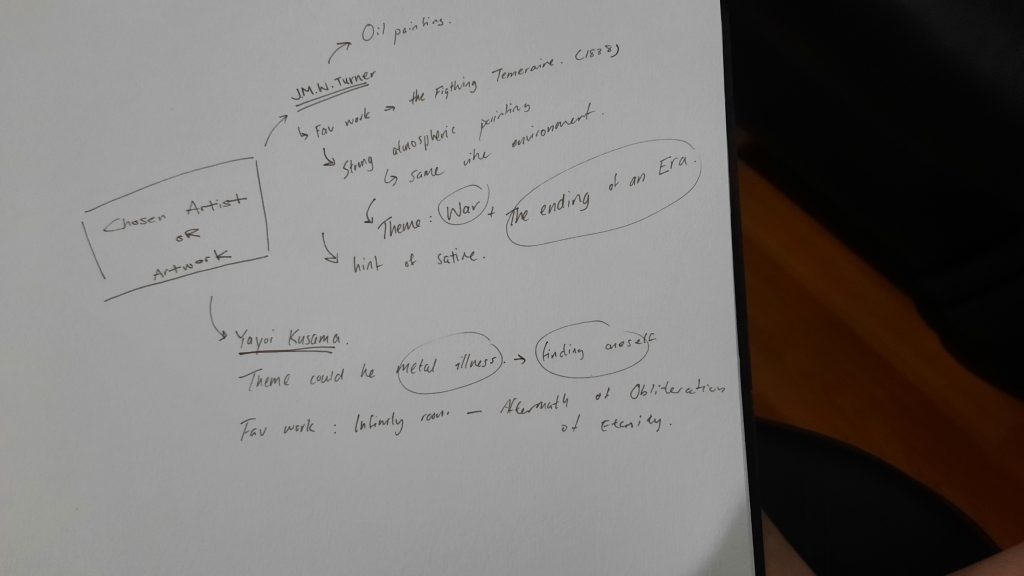 Oil painting.
J.M.W. Turner
Fav work → the Figthing Temeraire. (1838)
Strong atmospheric painting
↳ same vibe environment.
Theme : War + The ending of an Era.
hint of satire.
Chosen Artist
OR
Artwork
Yayoi Kusama.
Theme could be metal illness. → finding oneself
Fav work : Infinity room — Aftermath of Obliteration
of Eternity.